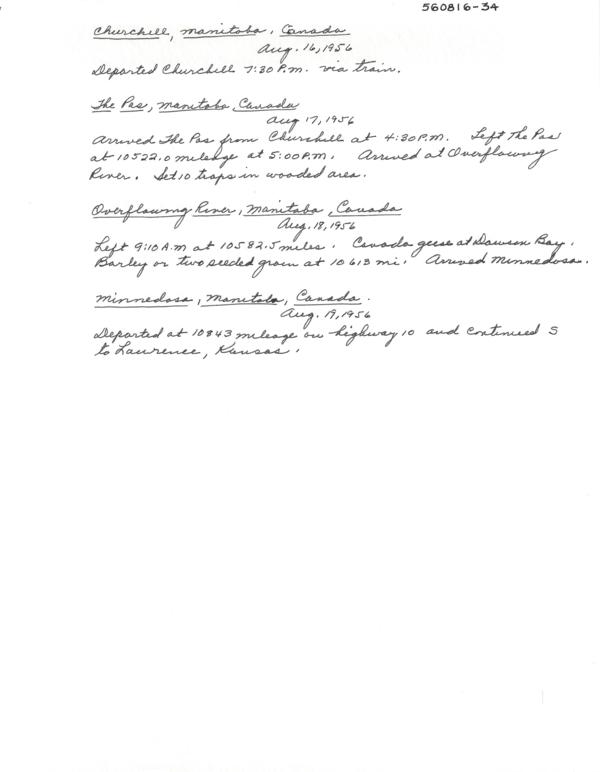 560816-34
Churchill, Manitoba, Canada
Aug. 16, 1956
Departed Churchill 7:30 P.M. via train.
The Pas, Manitoba, Canada
Aug 17, 1956
Arrived The Pas from Churchill at 4:30 P.M. Left The Pas
at 10522.0 mileage at 5:00 P.M. Arrived at Overflowing
River. Set 10 traps in wooded area.
Overflowing River, Manitoba, Canada
Aug. 18, 1956
Left 9:10 A.M at 10582.5 miles. Canada geese at Dawson Bay.
Barley or two seeded grain at 10613 mi. Arrived Minnedosa.
Minnedosa, Manitoba, Canada.
Aug. 19, 1956
Departed at 10843 mileage on highway 10 and continued S
to Lawrence, Kansas.